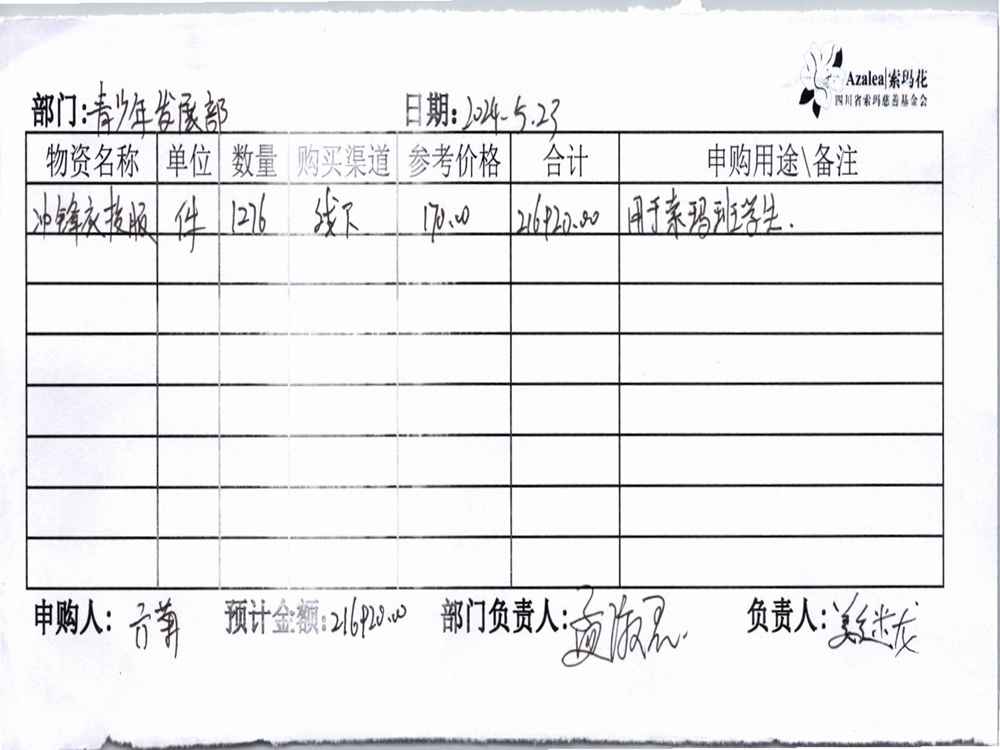 Azalea|索玛花
四川省索玛慈善基金会
部门:青少年发展部 日期:2024.5.23
物资名称 单位 数量 购买渠道 参考价格 合计 申购用途\备注
冲锋衣校服 件 1276 线下 170.00 216920.00 用于索玛班学生.
申购人: 预计金额:216920.00 部门负责人: 负责人: